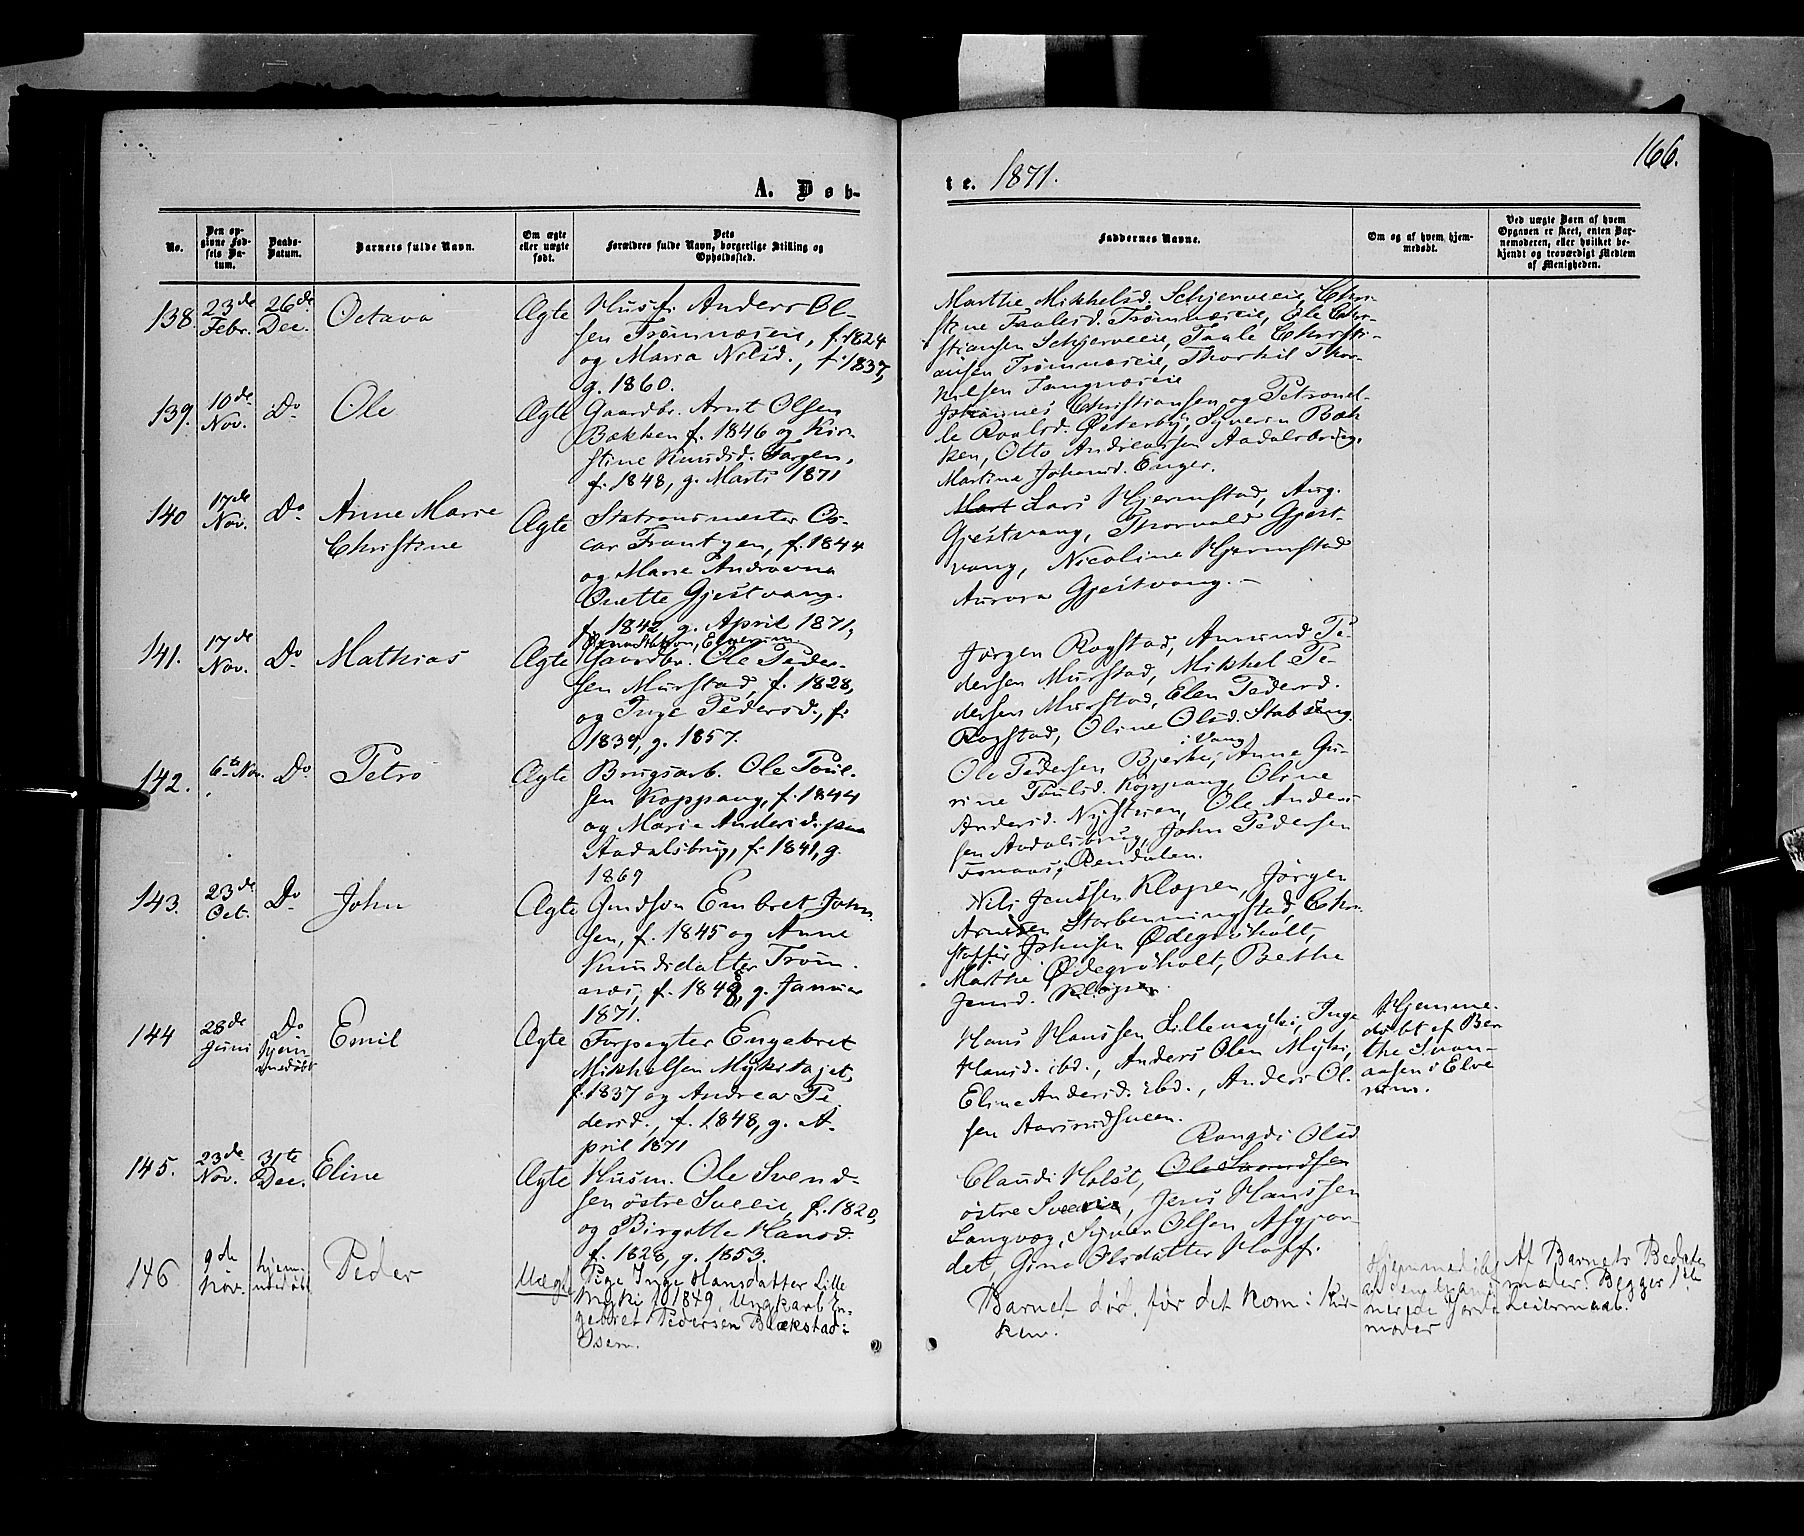 166.
A. Døb-
te. 1871.
No.
Den op-
givne Fød-
sels Da-
tum.
Daabs-
Datum.
Barnets fulde Navn.
Om ægte
eller uægte
født.
Dets
Forældres fulde Navn, borgerlige Stilling og
Opholdssted.
Faddernes Navne.
Om og af hvem hjem-
medøbt.
Ved uægte Børn af hvem
Opgaven er skeet, enten Bar-
nemoderen, eller hvilket be-
kjendt og troværdigt Medlem
af Menigheden.
138.
23de
Febr.
26de
Dec.
Octava
Ægte
Husf. Anders Ol-
sen Trømnæseie, f. 1824
og Maria Nilsd., f. 1837,
g. 1860.
Marthe Mikkelsd. Schjerveeie, Chri-
stine Paalsd. Trømnæseie, Ole Chri-
stiansen Schjerveeie, Paale Christi-
ansen Trømnæseie, Thorkil Thor-
kilsen Tangnæseie
139.
10de
Nov.
Do
Ole
Ægte
Gaardbr. Arnt Olsen
Bækken f. 1846 og Kir-
stine Knudsd. Torgen,
f. 1848, g. Marts 1871
Johannes Christiansen og Petronel-
le Roalsd. Østerby, Syverin Bæk-
ken, Otto Andreassen Aadalsbrug,
Martina Johansd. Enger.
140
17de
Nov.
Do
Anne Marie
Christine
Ægte
Stationsmester Os-
car Frantzen, f. 1844
og Marie Androvna
Onette Gjestvang.
f. 1842 g. April 1871,
Elverum.
Mart Lars Hjermstad, Aug.
Gjestvang, Thorvald Gjest-
vang, Nicoline Hjermstad
Aurora Gjestvang. -
141.
17de
Nov.
Do
Mathias
Ægte
Gaardbr. Ole Peder-
sen Murstad, f. 1828,
og Inge Pedersd., f.
1839, g. 1857.
Jørgen Rogstad, Amund Pe-
dersen Murstad, Mikkel Pe-
dersen Murstad, Elen Pedersd.
Rogstad, Oline Olsd. Stabseng.
142.
6te Nov.
Do
Petro
Ægte
Brugsarb. Ole Poul-
sen Koppang, f. 1844
og Marie Andersd. paa
Aadalsbrug, f. 1841, g.
1869
i Vang
Ole Pedersen Bjerke, Anne Gu-
rine Poulsd. Koppang, Oline
Andersd. Nystuen, Ole Ander-
sen Aadalsbrug, John Pedersen
i Rendalen.
143.
23de
Oct.
Do
John
Ægte
Gmdsøn Embret John-
sen, f. 1845 og Anne
Knudsdatter Trøm-
næs, f. 1848, g. Januar
1871.
Nils Jensen Kløpen, Jørgen
Arnesen Storbenningstad, Chri-
stoffer Johnsen Ødegrøholt,
Marthe Ødegrøholt, Bethe
Jensd. Kløpen.
144
28de
Juni
Do
hjem-
medøbt
Emil
Ægte
Forpagter Engebret
Mikkelsen Mykstøjet,
f. 1837 og Andrea Pe-
dersd., f. 1848, g. A-
pril 1871
Hans Hanssen Lillemyki, Inge
Hansd. ibd., Anders Olsen Myki,
Eline Andersd. ibd., Anders Ol-
sen Aasrudsveen.
Hjemme-
døbt af Ber-
the Svan-
aasen i Elve
rum.
145.
23de
Nov.
31te
Dec.
Eline
Ægte
Husm. Ole Svend-
sen østre Sveeie, f. 1820,
og Birgitte Hansd.
f. 1828, g. 1853.
Rangdi Olsd
Claudi Holst, Ole Svendsen
østre Sveeie, Jens Hanssen
Langvog, Syver Olsen Afgjor-
det, Gina Olsdatter Hoff.
146
9de
Nov.
hjem-
medøbt
Peder
Uægte
Pige Inge Hansdatter Lille
Myki f. 1849, Ungkarl En-
gebret Pedersen Blækstad i
Osen.
Barnet død, før det kom i Kir-
ken.
Hjemmedøbt
af den examinerede Jorde-
moder
Af Barnets Bedste-
moder. Begges 1ste
Leiermaal.